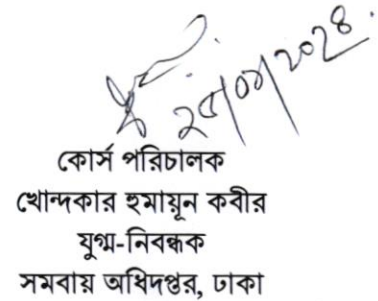 ২৫/০৩/২০২৪
কোর্স পরিচালক
খোন্দকার হুমায়ূন কবীর
যুগ্ম-নিবন্ধক
সমবায় অধিদপ্তর, ঢাকা